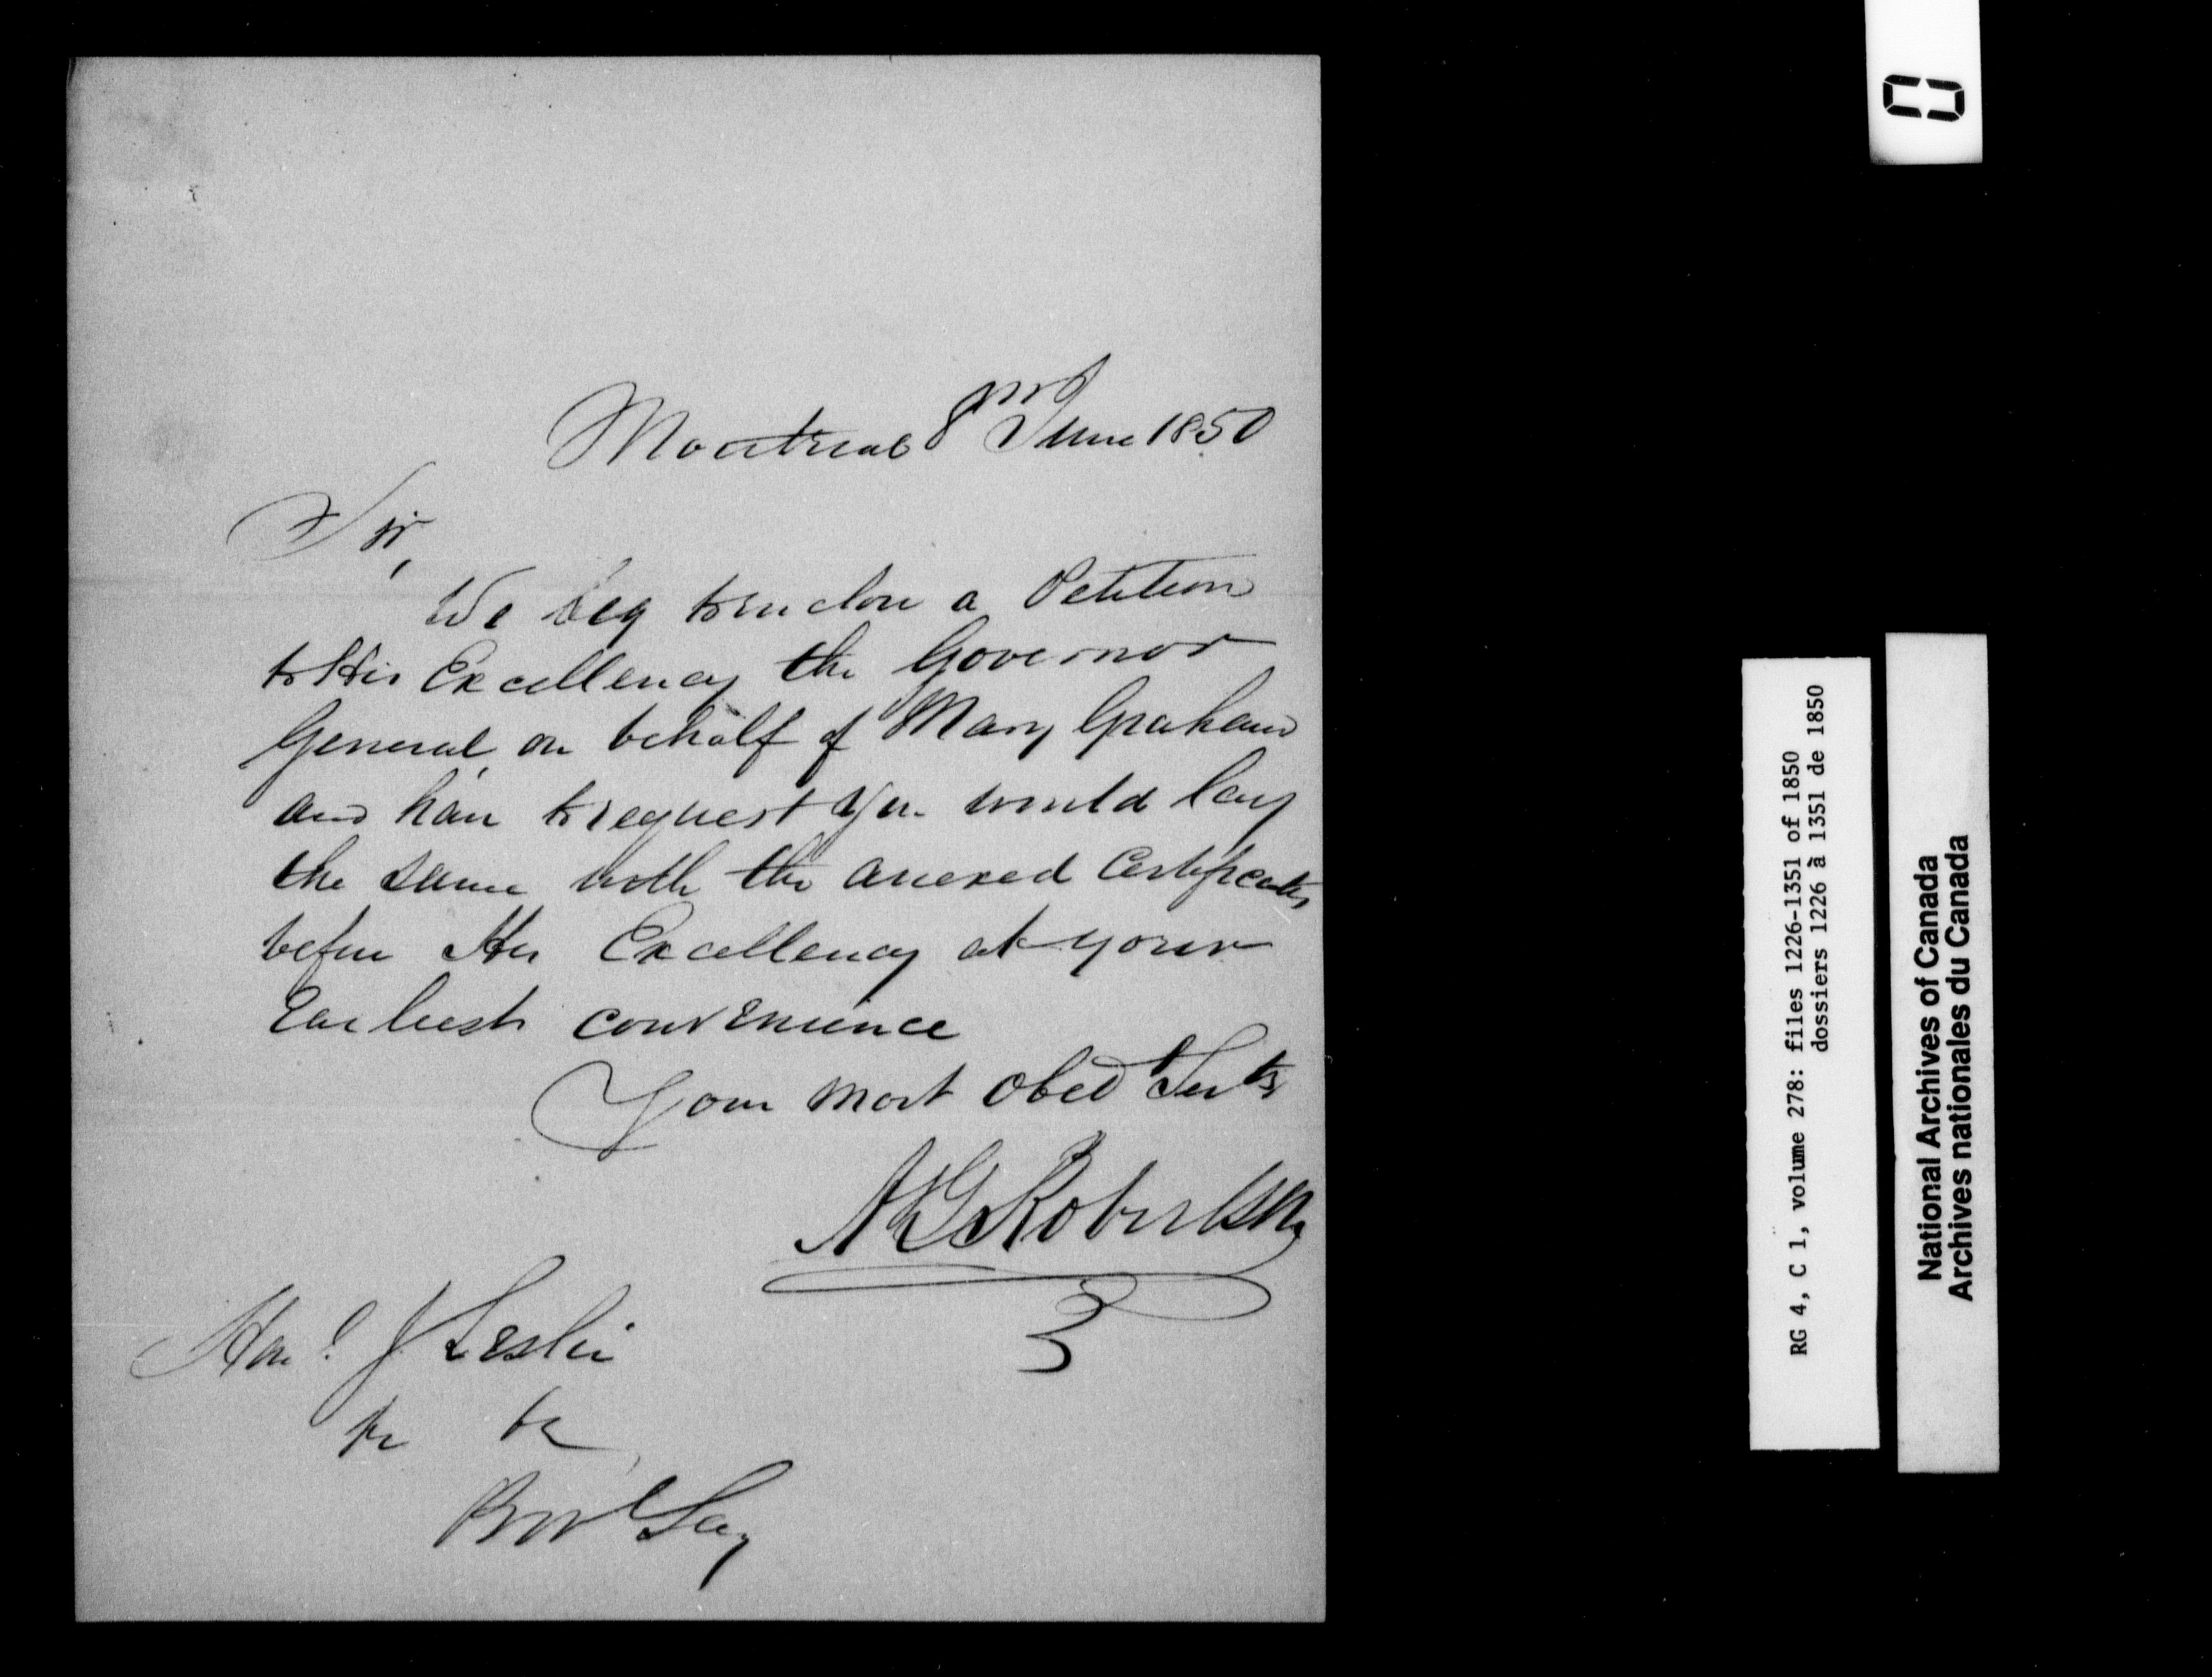 Montreal 8 June 1850
Sir,
We beg to enclose a Petition
to His Excellency the Governor
General, on behalf of Mary Graham
and have to request you would lay
the same with the anexed Certificates
before His Excellency at your
Earliest convenience
Your most Obed Servts
A & G Robertson
Honl. J Leslie
&c &c
Provl Secy
0
RG 4, C 1, volume 278: files 1226-1351 of 1850
dossiers 1226 à 1351 de 1850
National Archives of Canada
Archives nationales du Canada